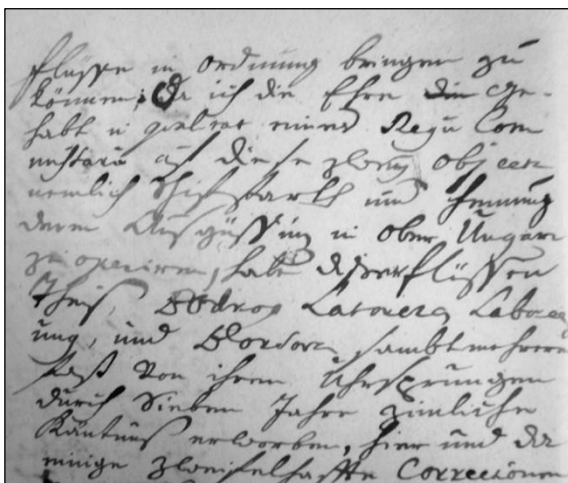 Flüsse in ordnung bringen zu
können; da ich die Ehre die ge-
habt in qualitat eines Regii Com
missarii auf diese zwey objecten
nemlich Schifbarkeit und Hemung
deren Ausgüssung in ober Ungarn
zu operiren, habe dieser flüssen
Theis, Bodrog Latorcza Laborcza
ung, und Bordova sambt mehrern
fast von ihren Uhrsprüngen
durch Sieben Jahre zimliche
Käntnus erworben, hier und da
einige zweifelhaffte Correctionen